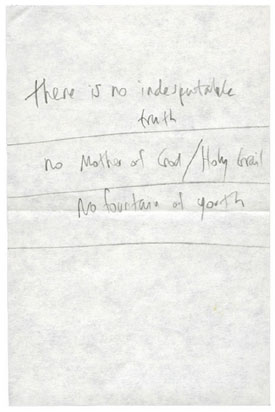 there is no indesputable
truth
no Mother of God / Holy Grail
No fountain of youth